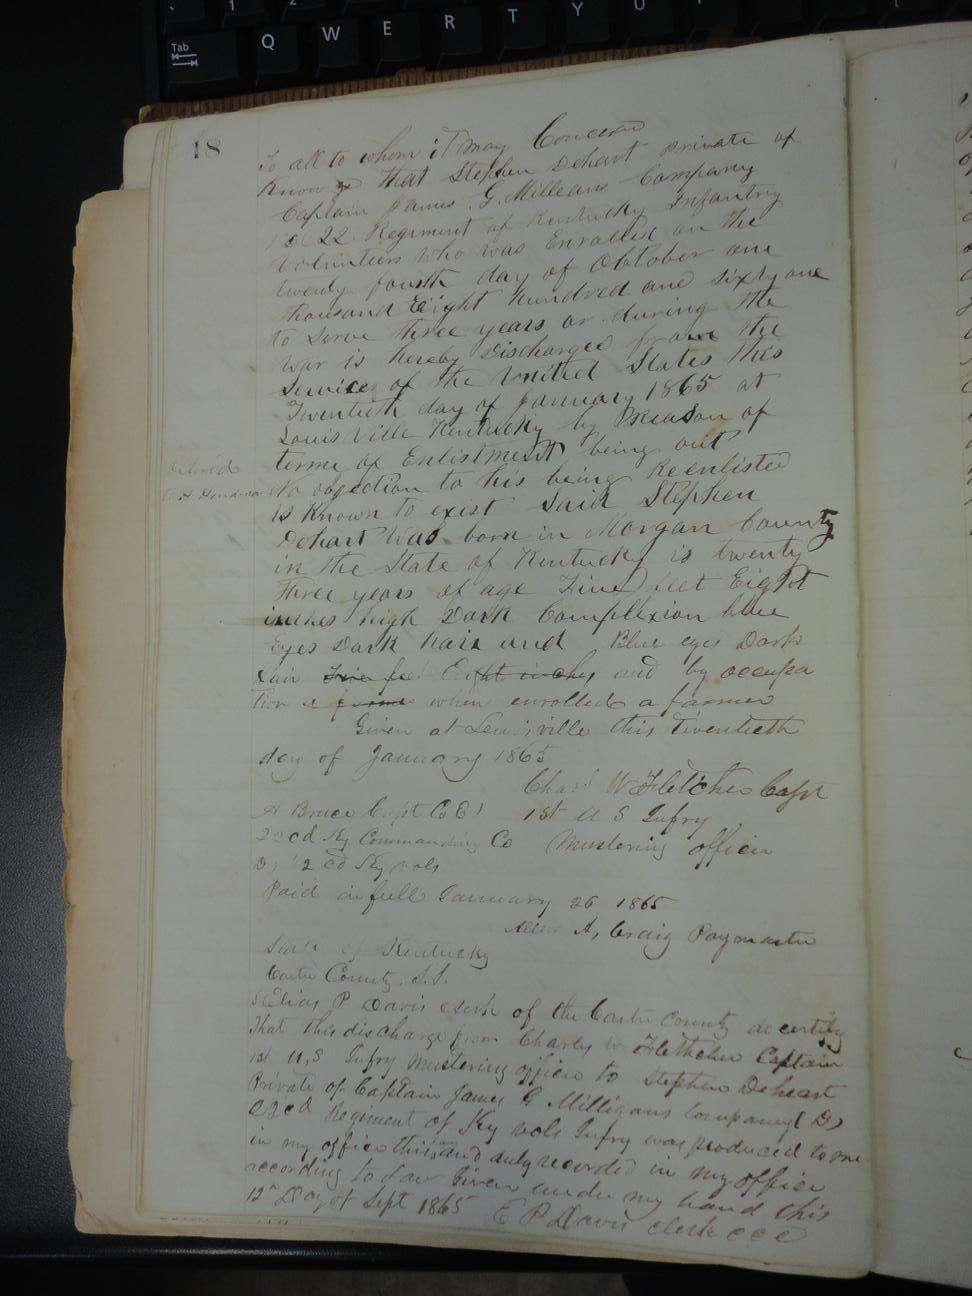 18
To all to whom it may Concern
Know ye that Stephen Dehart Private of
Captain James G. Milleans Company
D( 22 Regiment of Kentucky Infantry
Volunteers who was Enrolled on the
twenty fourth day of October one
thousand Eight hundred and sixty one
to Serve three years or during the
War is hereby Discharged from the
Services of the United States this
Twentieth day of January 1865 at
Louis Ville Kentucky by Reason of
terme of Enlistment being out
No objection to his being Reenlisted
is Known to exist Said Stephen
Dehart Was born in Morgan County
in the State of Kentucky is twenty
Three years of age Five feet Eight
inches high Dark Complexion blue
Eyes Dark hair and Blue eyes Dark
hair Five feet Eight inches and by occupa
tion a farme when enrolled a farmer
Given at Lewisville this twentieth
day of January 1865
Chas W Fletcher Capt
A Bruce Capt Co E 1st U S Infry
22cd Ky Commanding Co Mustering officer
D, 22cd Ky vols
Paid in full January 26 1865
A, Craig Paymaster
State of Kentucky
Carter County, S.S.
I Elias P Davis clerk of the Carter County do certify
That this discharge from Charly W Flethcher Captain
1st U,S Infry mustering officer to Stephen Deheart
Private of Captain James G Milligans Company (D)
22cd Regiment of Ky vols Infry was produced to me
in my office this and duly recorded in my office
according to Law Given under my hand this
12th Day of Sept 1865 E P Davis clerk C C C